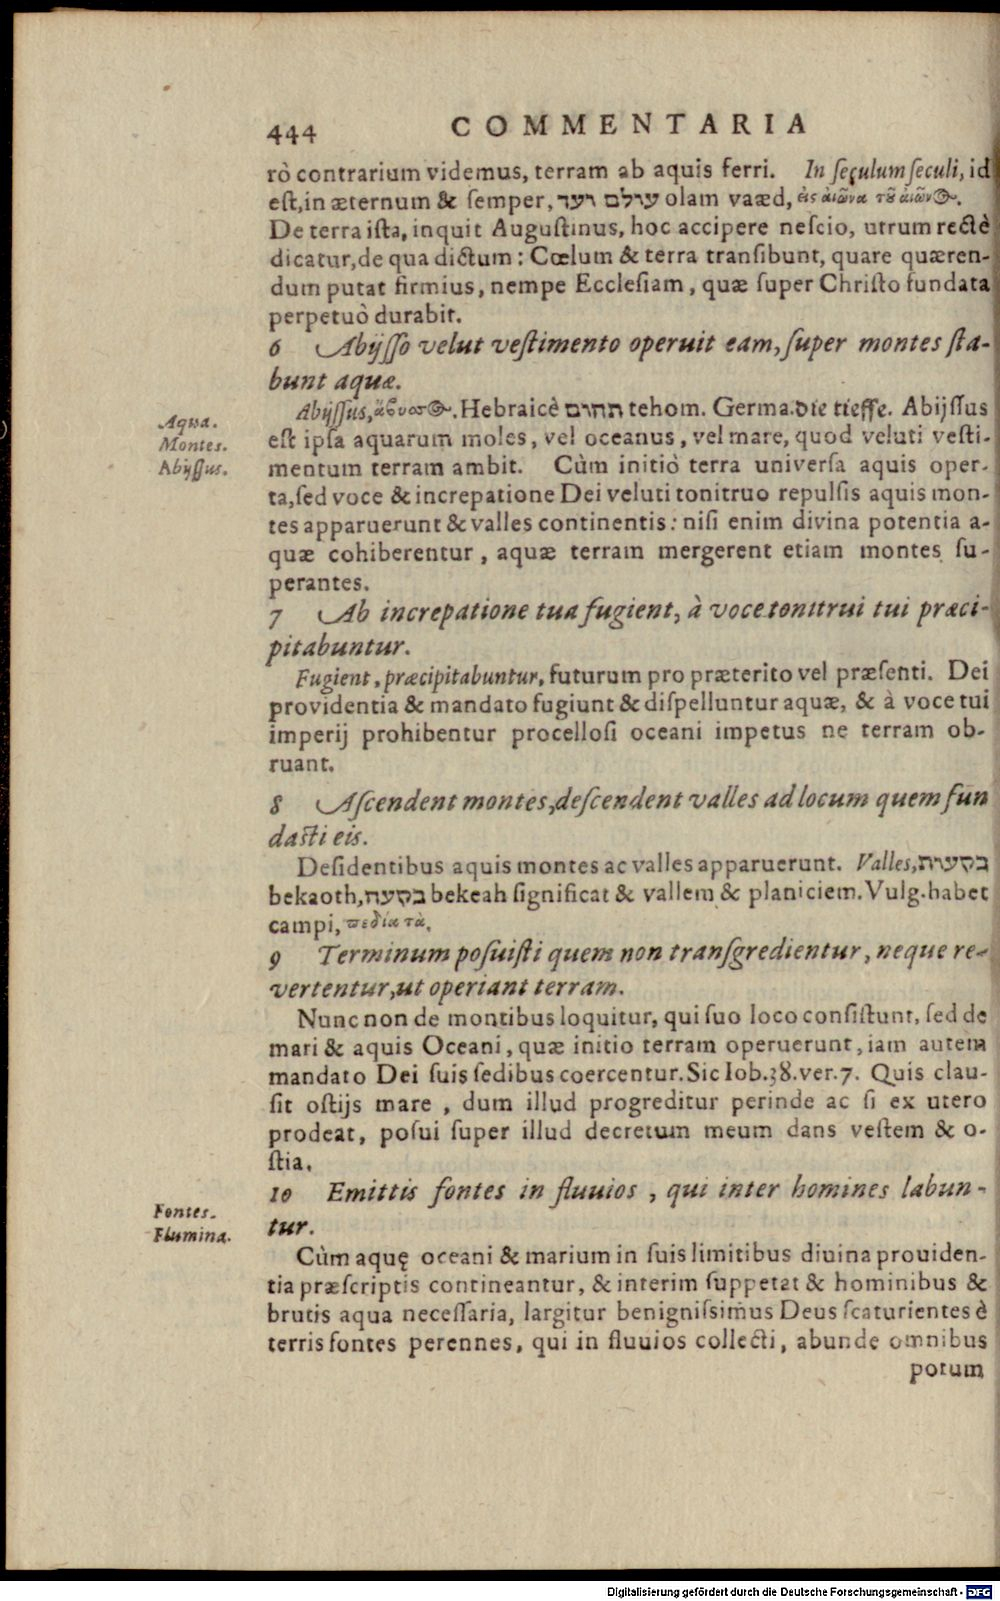 444 COMMENTARIA
rò contrarium videmus, terram ab aquis ferri. In sęculum seculi, id
est, in æternum & semper, עולם ועד olam vaæd, εἰς αἰῶνα τοῦ αἰῶνος.
De terra ista, inquit Augustinus, hoc accipere nescio, utrum rectè
dicatur, de qua dictum: Cœlum & terra transibunt, quare quæren-
dum putat firmius, nempe Ecclesiam, quæ super Christo fundata
perpetuò durabit.
6 Abijsso velut vestimento operuit eam, super montes sta-
bunt aquæ.
Abijssus, ἄβυσσος. Hebraicè תהום tehom. Germa. die tieffe. Abijssus
Aqua.
Montes.
Abijssus.
est ipsa aquarum moles, vel oceanus, vel mare, quod veluti vesti-
mentum terram ambit. Cùm initiò terra universa aquis oper-
ta, sed voce & increpatione Dei veluti tonitruo repulsis aquis mon-
tes apparuerunt & valles continentis: nisi enim divina potentia a-
quæ cohiberentur, aquæ terram mergerent etiam montes su-
perantes.
7 Ab increpatione tua fugient, à voce tonitrui tui præci-
pitabuntur.
Fugient, præcipitabuntur, futurum pro præterito vel præsenti. Dei
providentia & mandato fugiunt & dispelluntur aquæ, & à voce tui
imperij prohibentur procellosi oceani impetus ne terram ob-
ruant.
8 Ascendent montes, descendent valles ad locum quem fun
dasti eis.
Desidentibus aquis montes ac valles apparuerunt. Valles, בקעות
bekaoth, בקעה bekeah significat & vallem & planiciem. Vulg. habet
campi, πεδία τὰ.
9 Terminum posuisti quem non transgredientur, neque re-
vertentur, ut operiant terram.
Nunc non de montibus loquitur, qui suo loco consistunt, sed de
mari & aquis Oceani, quæ initio terram operuerunt, iam autem
mandato Dei suis sedibus coercentur. Sic Iob. 38. ver. 7. Quis clau-
sit ostijs mare, dum illud progreditur perinde ac si ex utero
prodeat, posui super illud decretum meum dans vestem & o-
stia.
10 Emittis fontes in fluuios, qui inter homines labun-
tur.
Fontes.
Flumina.
Cùm aquę oceani & marium in suis limitibus diuina prouiden-
tia præscriptis contineantur, & interim suppetat & hominibus &
brutis aqua necessaria, largitur benignissimus Deus scaturientes è
terris fontes perennes, qui in fluuios collecti, abunde omnibus
potum
Digitalisierung gefördert durch die Deutsche Forschungsgemeinschaft - DFG